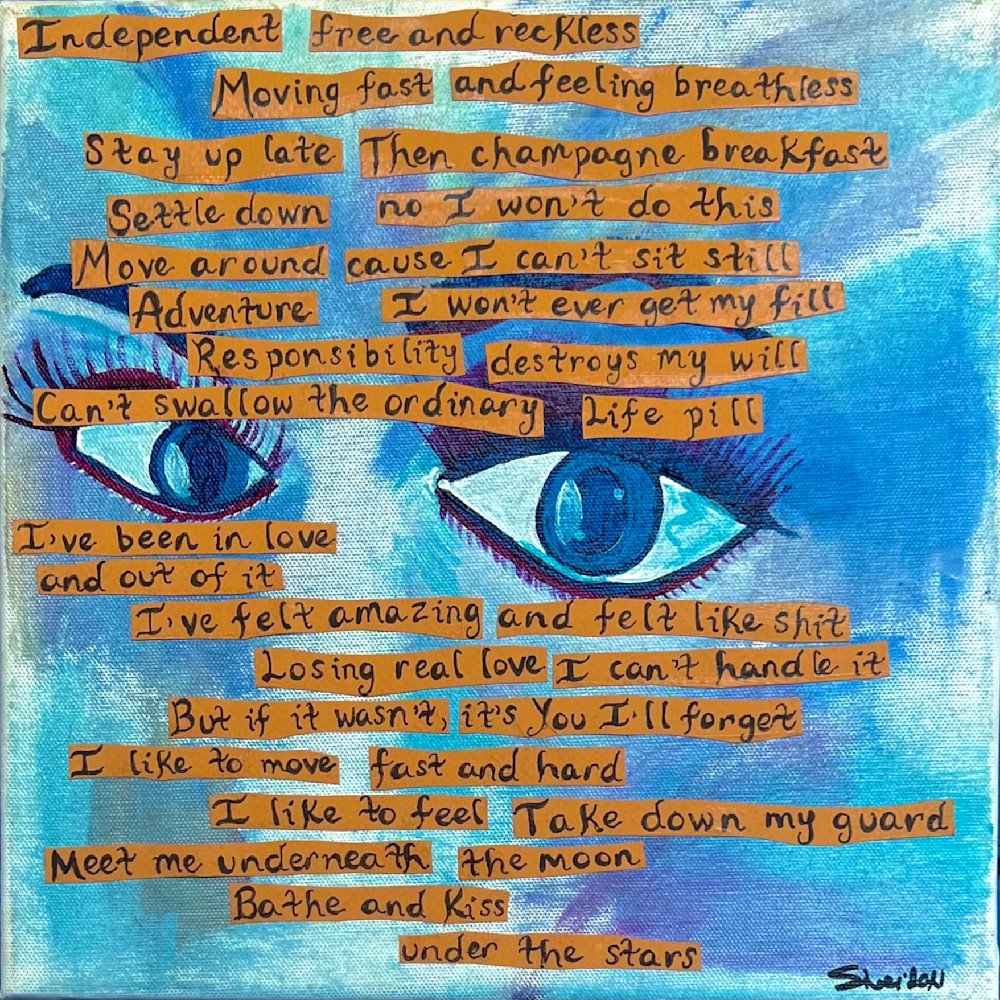 Independent free and reckless
Moving fast and feeling breathless
Stay up late Then champagne breakfast
Settle down no I won't do this
Move around cause I can't sit still
Adventure I won't ever get my fill
Responsibility destroys my will
Can't swallow the ordinary Life pill
I've been in love
and out of it
I've felt amazing and felt like shit
Losing real love I can't handle it
But if it wasn't, it's You I'll forget
I like to move fast and hard
I like to feel Take down my guard
Meet me underneath the moon
Bathe and Kiss
under the stars